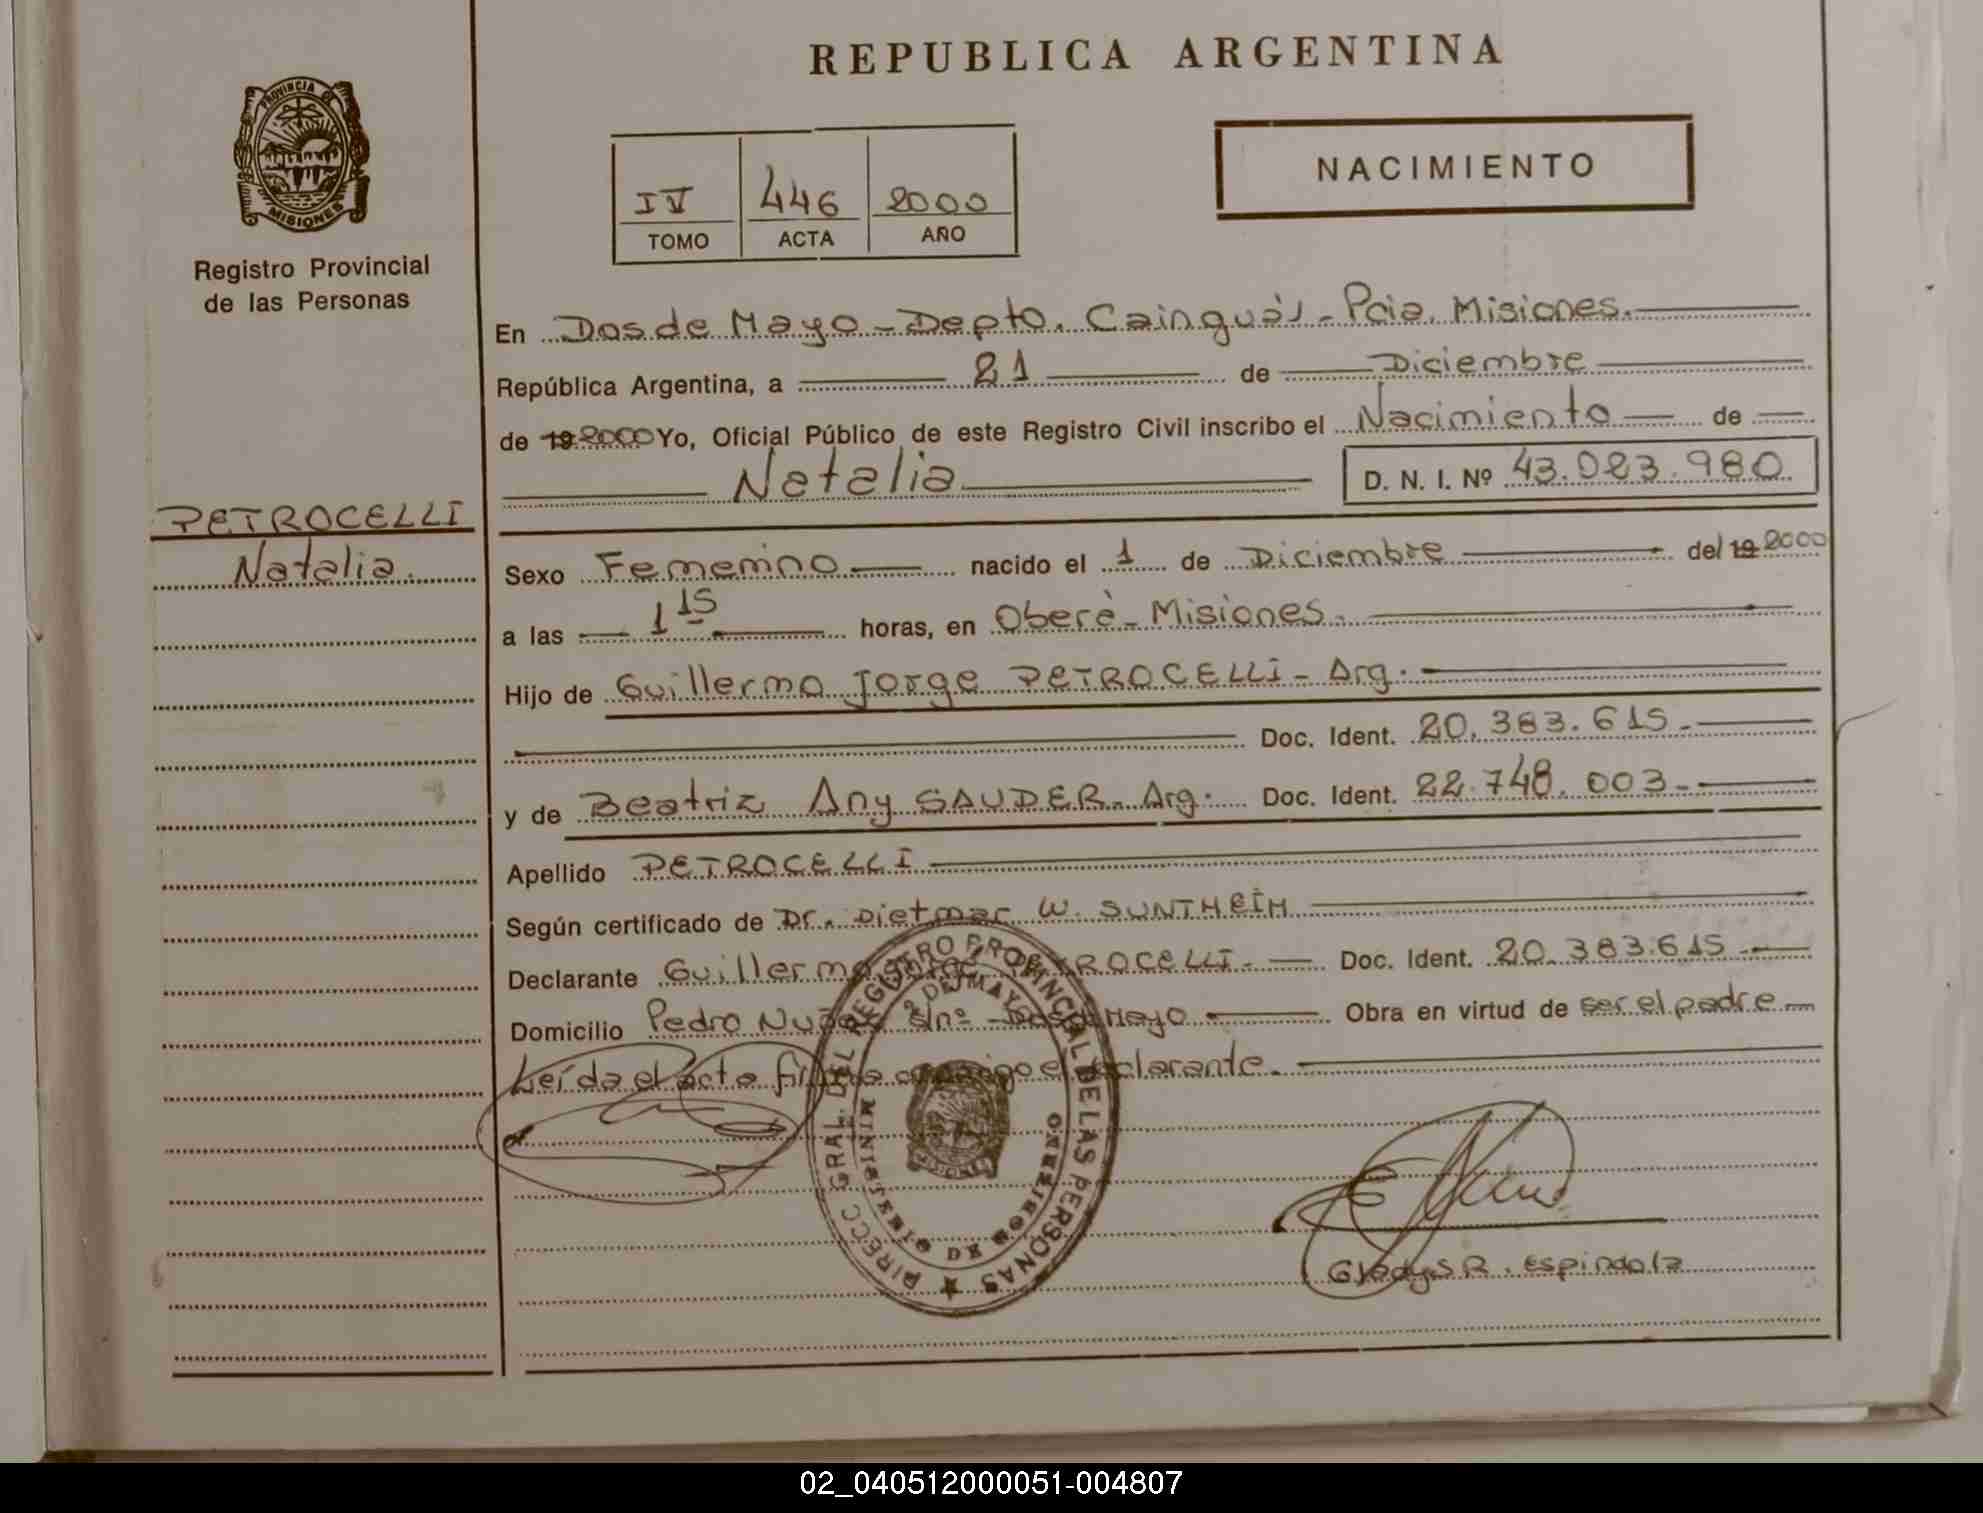 REPUBLICA ARGENTINA
PROVINCIA DE
MISIONES
Registro Provincial
de las Personas
IV 446 2000
TOMO ACTA AÑO
NACIMIENTO
En Dos de Mayo - Depto. Cainguás - Pcia. Misiones.
República Argentina, a 21 de Diciembre
de 19 2000 Yo, Oficial Público de este Registro Civil inscribo el Nacimiento de
Natalia D. N. I. Nº 43.023.980
PETROCELLI
Natalia.
Sexo Femenino nacido el 1 de Diciembre del 19 2000
a las 1 15 horas, en Oberà - Misiones.
Hijo de Guillermo Jorge PETROCELLI - Arg.
Doc. Ident. 20.383.615.-
y de Beatriz Any SAUDER - Arg. Doc. Ident. 22.748.003.-
Apellido PETROCELLI
Según certificado de Dr. Dietmar W. SUNTHEIM
Declarante Guillermo Jorge PETROCELLI. Doc. Ident. 20.383.615.-
Domicilio Pedro Nuñez s/nº - Dos de Mayo Obra en virtud de ser el padre
Leída el acta firma conmigo el declarante.
DIRECC GRAL. DEL REGISTRO PROVINCIAL DE LAS PERSONAS
2 DE MAYO
MINISTERIO DE GOBIERNO
MISIONES
Gladys R. Espindola
02_040512000051-004807